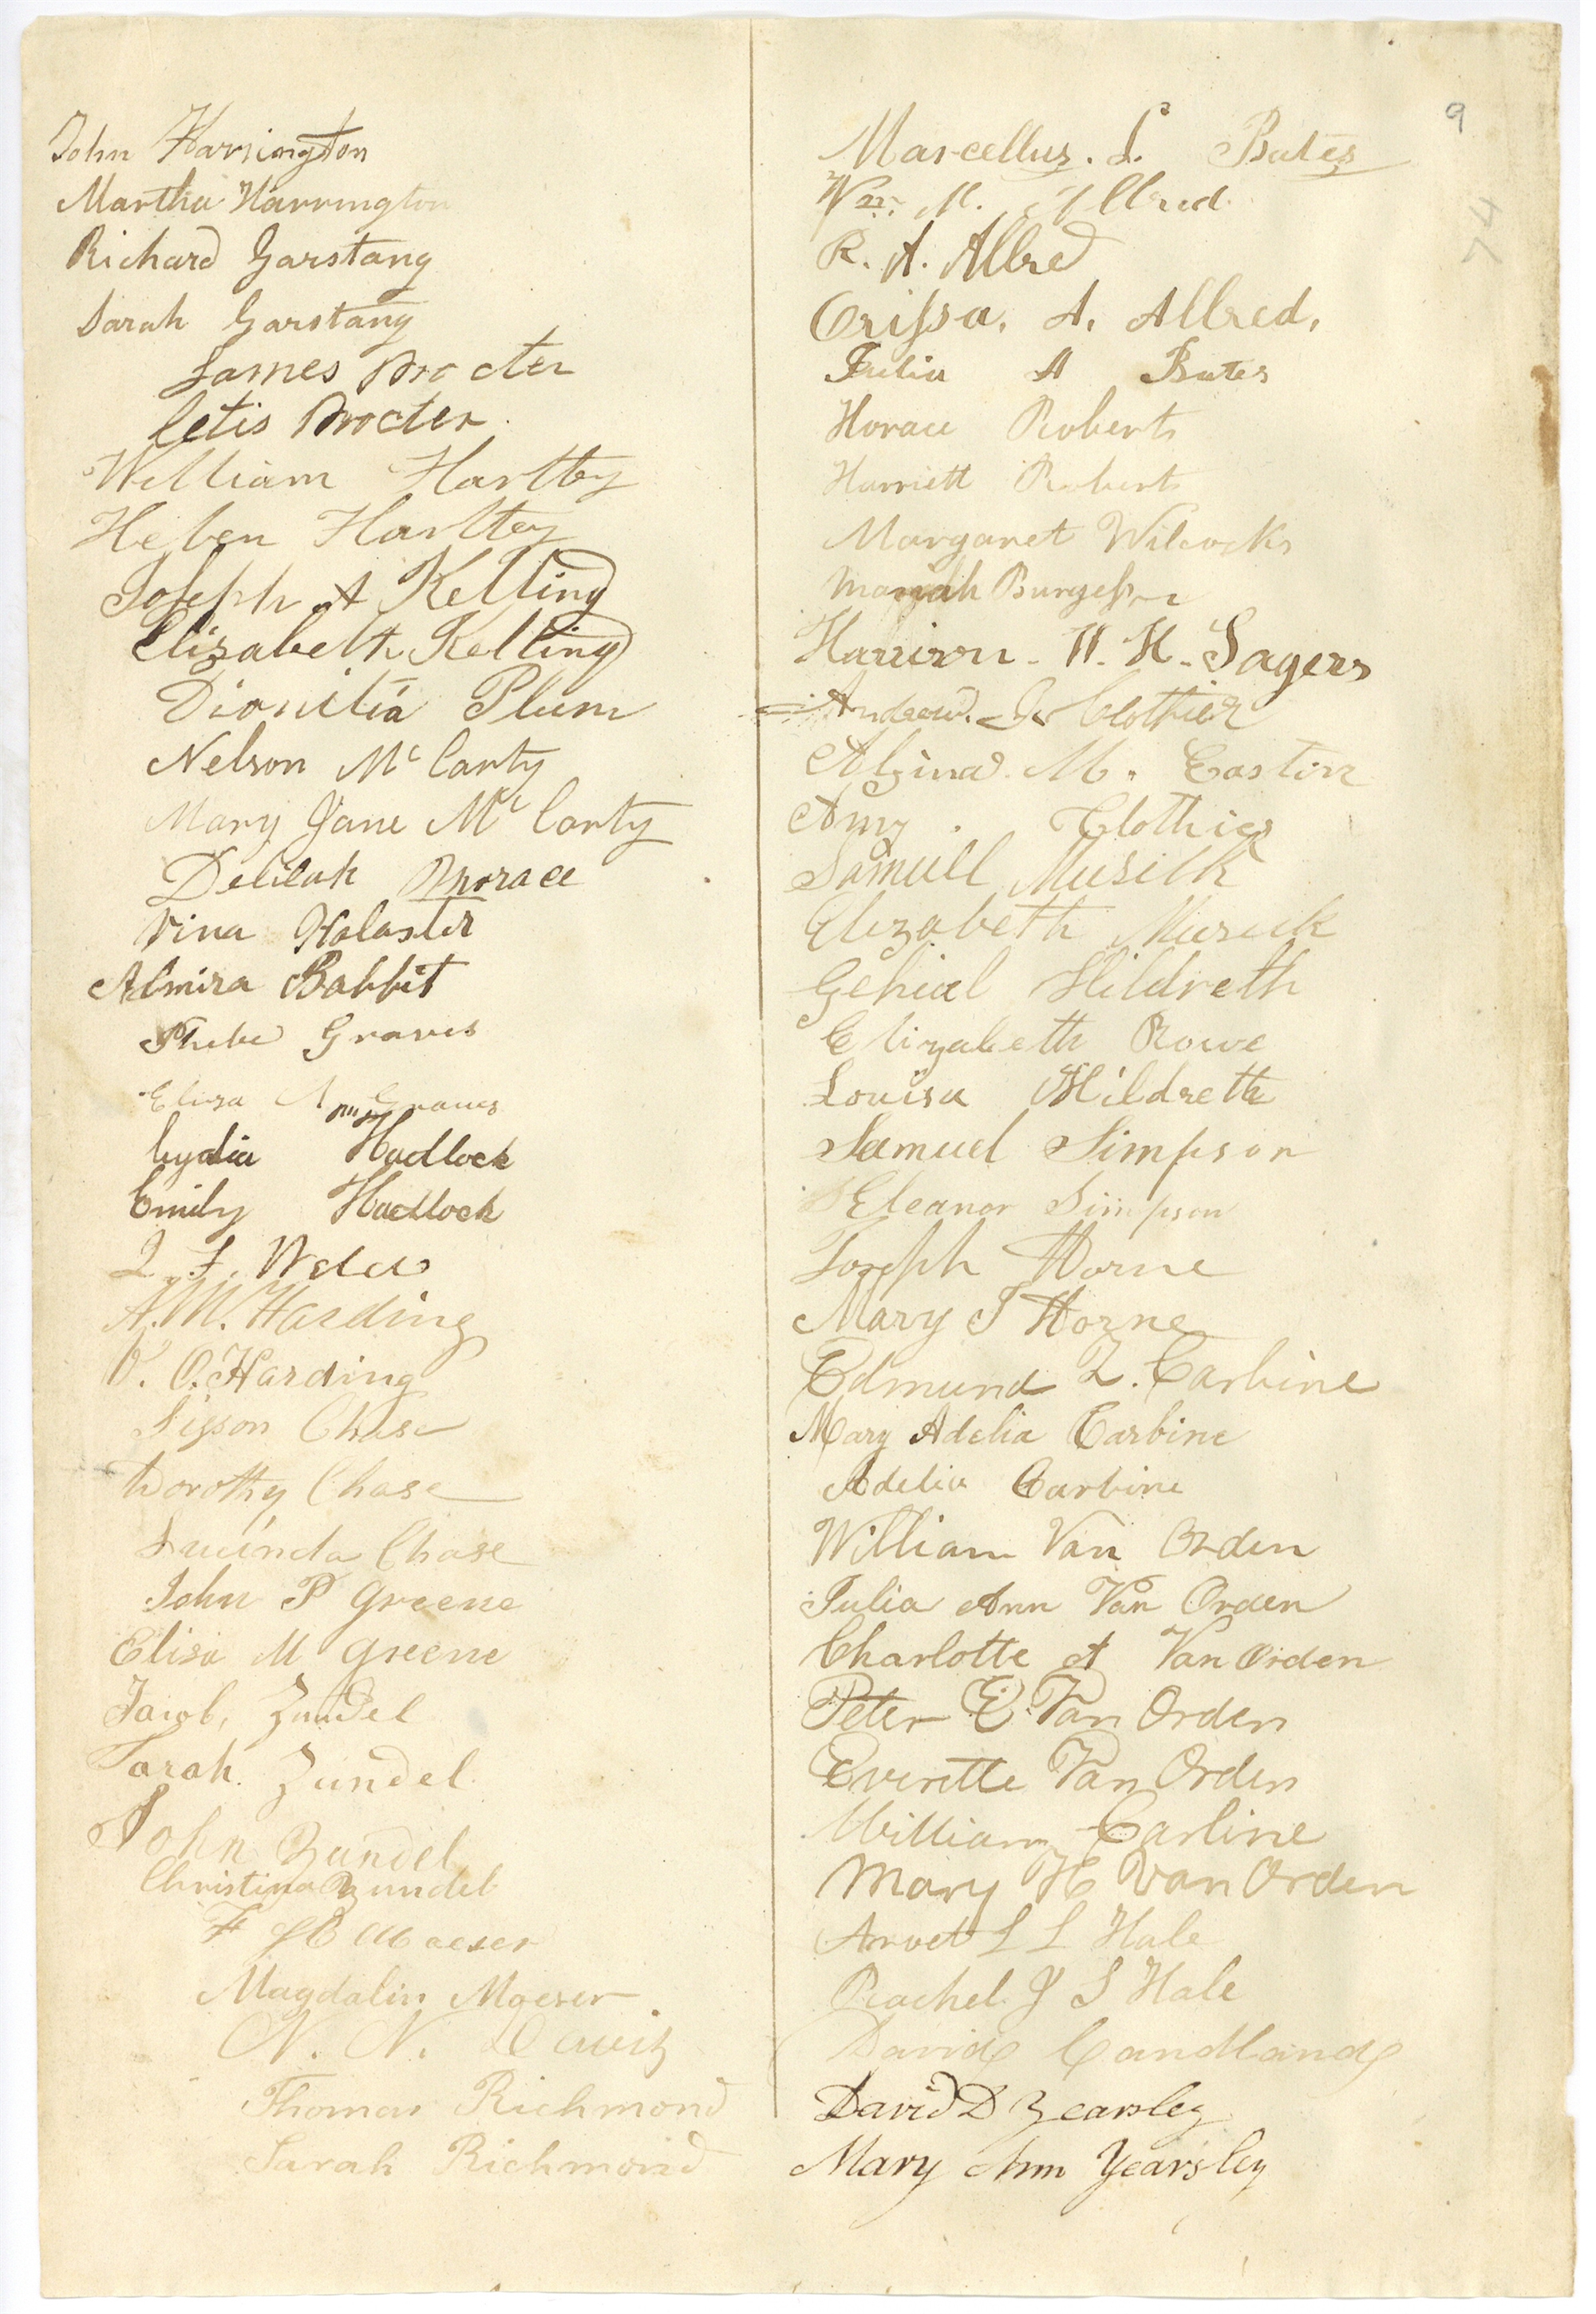 John Harrington
Martha Harrington
Richard Garstang
Sarah Garstang
James Procter
Cetis Procter
William Hartley
Helen Hartley
Joseph A Kelting
Elizabeth Kelting
Dionitia Plum
Nelson Mc Carty
Mary Jane Mc Carty
Delilah
Vina Holaster
Almira Babbit
Phebe Graves
Eliza Ann Graves
Lydia Hadlock
Emily Hadlock
F.
A. M. Harding
V. O. Harding
Sisson Chase
Dorothy Chase
Lucinda Chase
John P Greene
Elisa M Greene
Jacob, Zundel
Sarah. Zundel
John Zundel
Christina Zundel
F Maeser
Magdalin Maeser
N. N. Davis
Thomas Richmond
Sarah Richmond
9
74
Marcellus. L. Bates
Wm. M. Allred
R. A. Allred
Orissa. A. Allred.
Julia A Bates
Horace Roberts
Harriett Roberts
Margaret Wilcocks
Mariah Burgess
Harrison. W. H. Sagers
Andrew. J. Clothier
Alzina. M. Eastin
Amy. Clothier
Samuell Musick
Elizabeth Musick
Gehial Hildreth
Elizabeth Rowe
Louisa Hildreth
Samuel Simpson
Eleanor Simpson
Joseph Horne
Mary I Horne
Edmund Z. Carbine
Mary Adelia Carbine
Adelia Carbine
William Van Orden
Julia Ann Van Orden
Charlotte A Van Orden
Peter E. Van Orden
Everette Van Orden
William Carline
Mary H Van Orden
Aroet L L Hale
Rachel J S Hale
David Candland
David D Yearsley
Mary Ann Yearsley